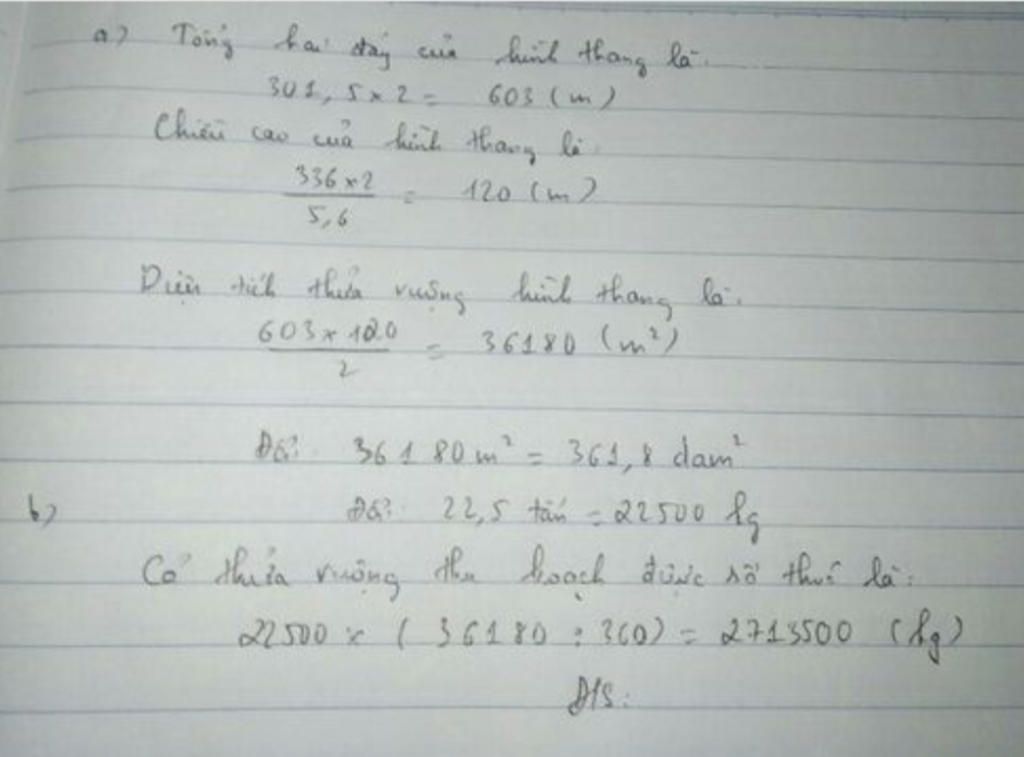 a) Tổng hai đáy của hình thang là.
301,5 x 2 = 603 (m)
Chiều cao của hình thang là
336 x 2 / 5,6 = 120 (m)
Diện tích thửa ruộng hình thang là.
603 x 120 / 2 = 36180 (m²)
Đổi: 36180 m² = 361,8 dam²
b) Đổi: 22,5 tấn = 22500 kg
Cả thửa ruộng thu hoạch được số thóc là:
22500 x (36180 : 360) = 2713500 (kg)
Đ/S: